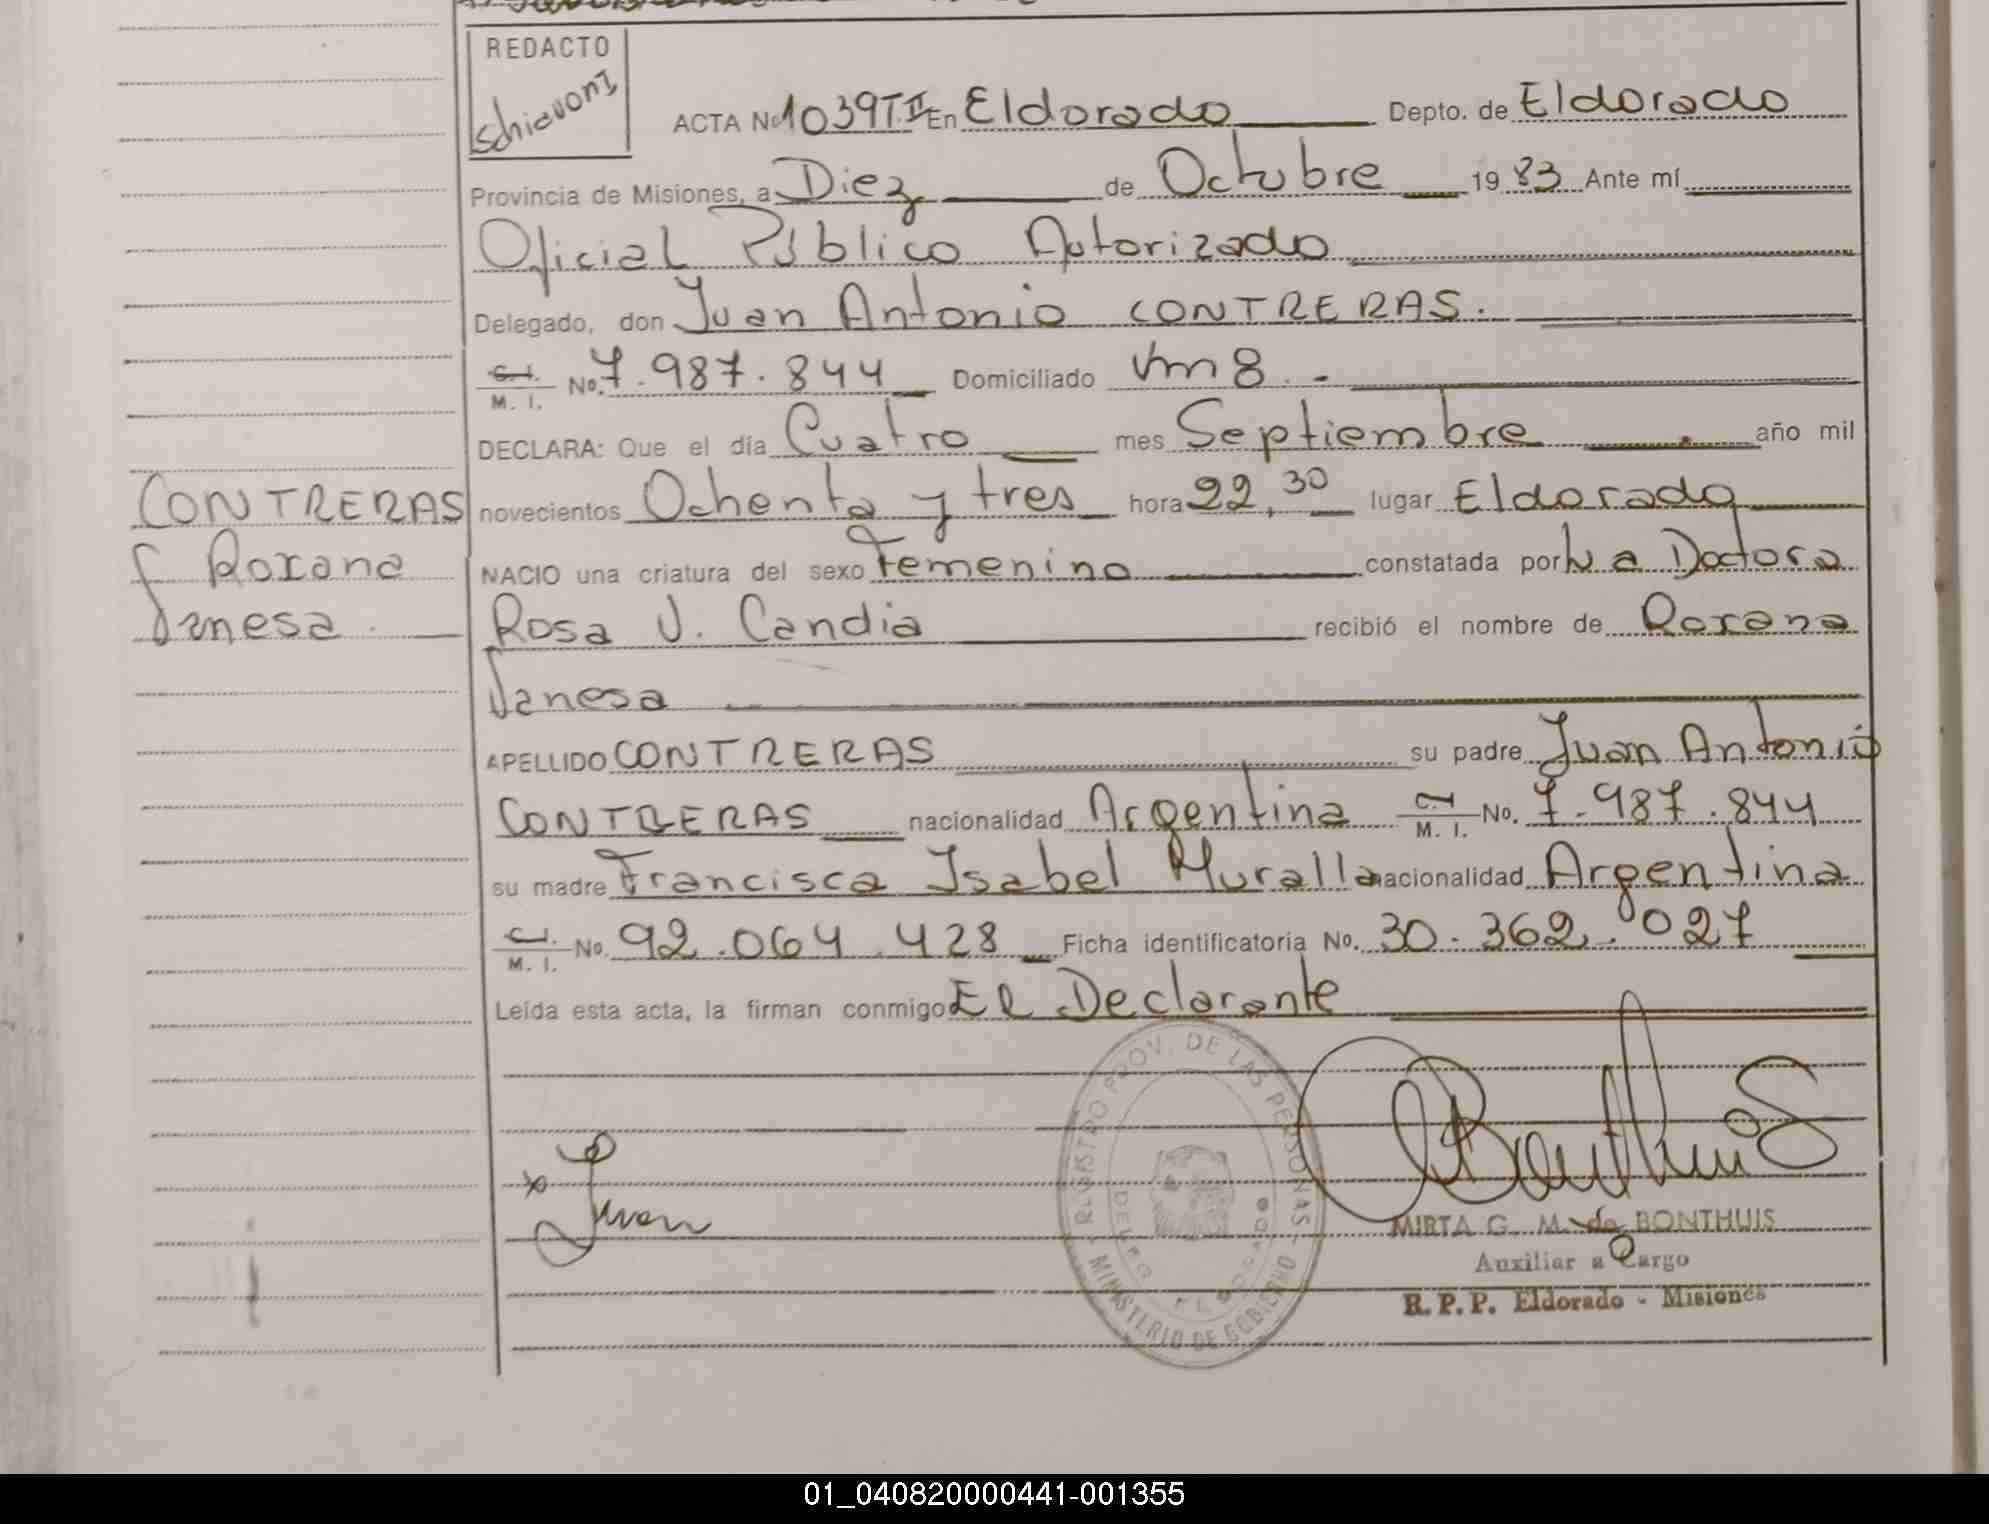 REDACTO
Schiavoni
ACTA No 1039 T.II En Eldorado Depto. de Eldorado
Provincia de Misiones, a Diez de Octubre 1983 Ante mí
Oficial Público Autorizado
Delegado, don Juan Antonio CONTRERAS.
C.I. M. I. No. 7.987.844 Domiciliado Km 8.-
DECLARA: Que el día Cuatro mes Septiembre año mil
novecientos Ochenta y tres hora 22,30 lugar Eldorado
NACIO una criatura del sexo Femenino constatada por La Doctora
Rosa V. Candia recibió el nombre de Roxana
Vanesa
APELLIDO CONTRERAS su padre Juan Antonio
CONTRERAS nacionalidad Argentina C.I. M. I. No. 7.987.844
su madre Francisca Isabel Muralla nacionalidad Argentina
C.I. M. I. No. 92.064.428 Ficha identificatoria No. 30.362.027
Leída esta acta, la firman conmigo El Declarante
CONTRERAS
Roxana
Vanesa.
REGISTRO PROV. DE LAS PERSONAS
MINISTERIO DE GOBIERNO
ELDORADO
Juan
Bonthuis
MIRTA G. M. de BONTHUIS
Auxiliar a Cargo
R. P. P. Eldorado - Misiones
01_040820000441-001355